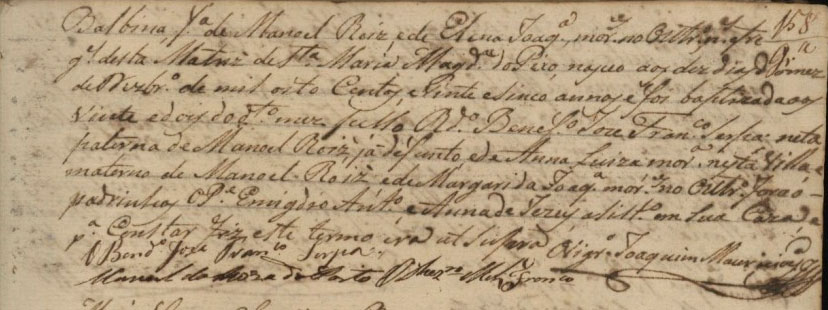 Balbina, fª de Manoel Roiz, e de Elena Joaqª morª no Outrº nª fre
gª desta Matriz de Stª Maria Magdª do Pico, nasceo aos dez dias do mez
de Novbrº de mil oito Centos, e Vinte e sinco annos, e foi baptizada aos
Vinte e dois do dtº mez pello Rdº Benefº Joze Francº Serpa: neta
paterna de Manoel Roiz, já defunto, e de Anna Luiza morª nesta Villa, e
materna de Manoel Roiz e de Margarida Joaqª morª no Outrº forão
padrinhos o Pª Emigdio Antº, e Anna de Jezus, asistª em sua Caza, e
pª Constar fiz este termo era ut supra O Vigrº Joaquim
O Bendº Joze Francº Serpa
Manoel da Porto
158